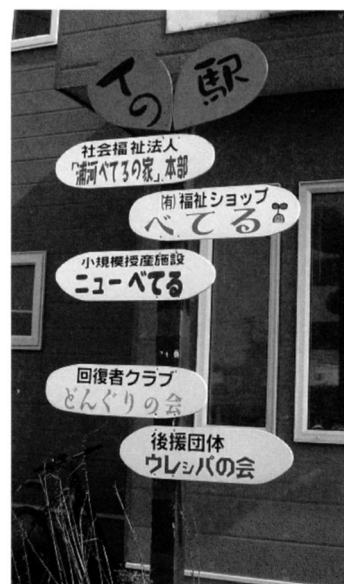 イの駅
社会福祉法人
「浦河べてるの家」本部
(有)福祉ショップ
べてる
小規模授産施設
ニューべてる
回復者クラブ
どんぐりの会
後援団体
ウレシパの会